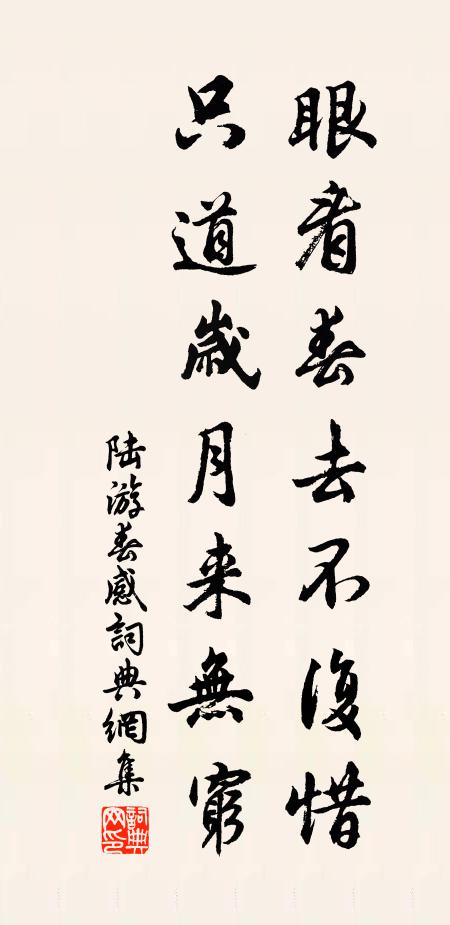 眼看春去不復惜
只道歲月來無窮
陸游春感詞典網集
詞典網印